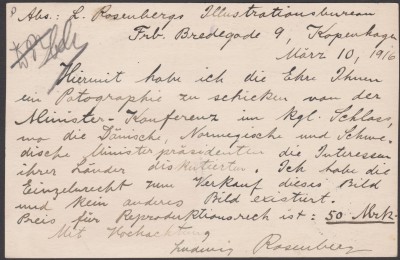 Abs: L. Rosenbergs Illustrationsbureau
Frb. Bredegade 9, Kopenhagen
März 10, 1916
Hiermit habe ich die Ehre Ihnen
ein Fotographie zu schicken von der
Minister-Konferenz im kgl. Schloss,
wo die Dänische, Norwegische und Schwe-
dische Ministerpräsidenten die Interessen
ihrer Länder diskutierten. Ich habe die
Einzelnrecht zum Verkauf dieses Bild
und kein anderes Bild existiert.
Preis für Reproduktionsrech ist: 50 Mrk-
Mit Hochachtung
Ludwig Rosenberg